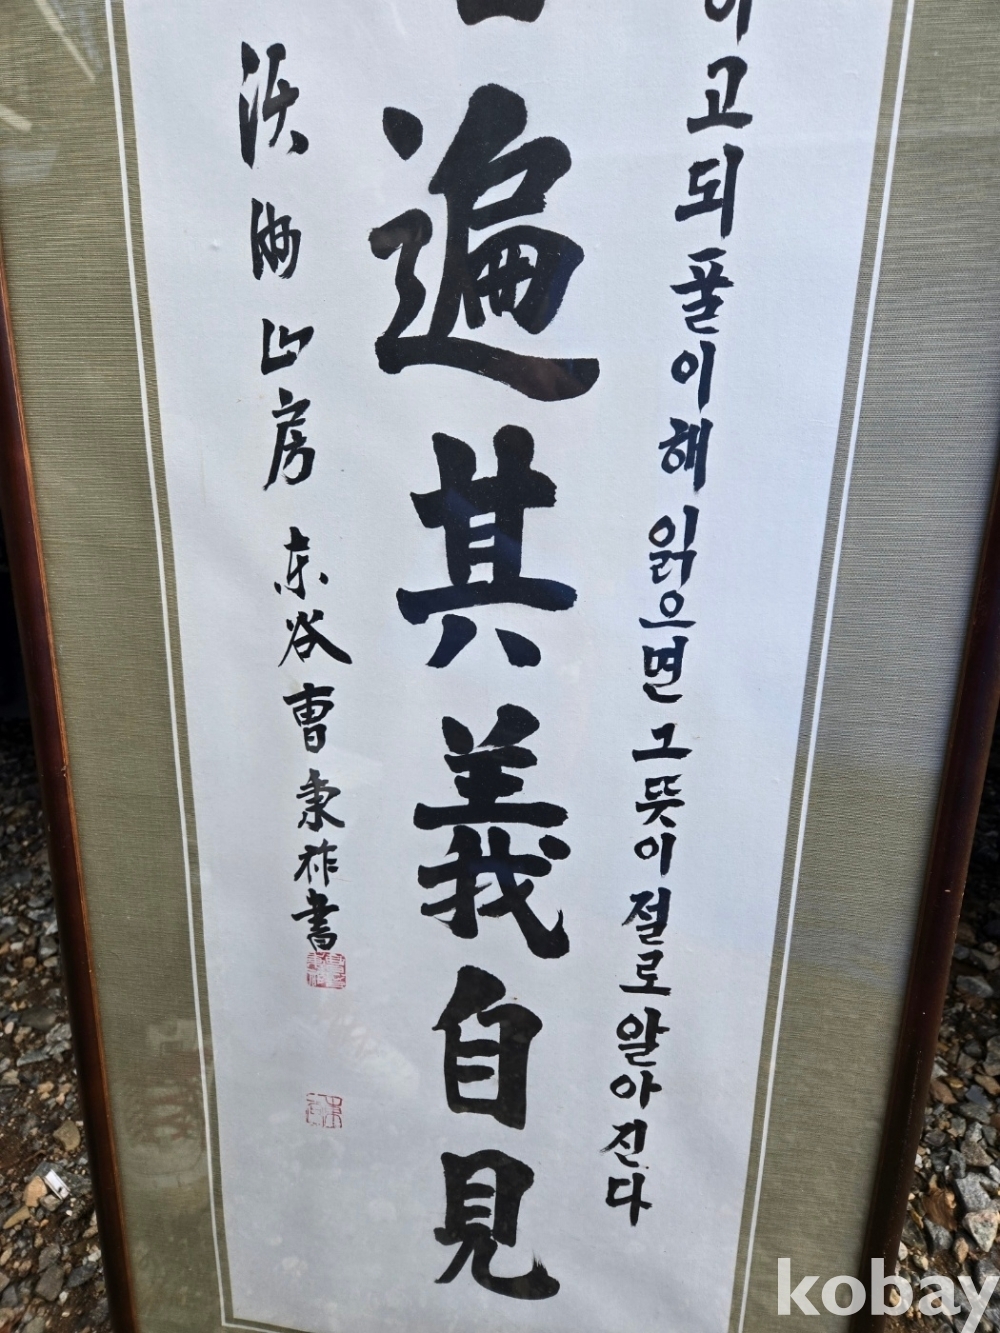 고되풀이해 읽으면 그 뜻이 절로 알아진다
遍其義自見
沃海山房 东谷 曺秉祚書
kobay